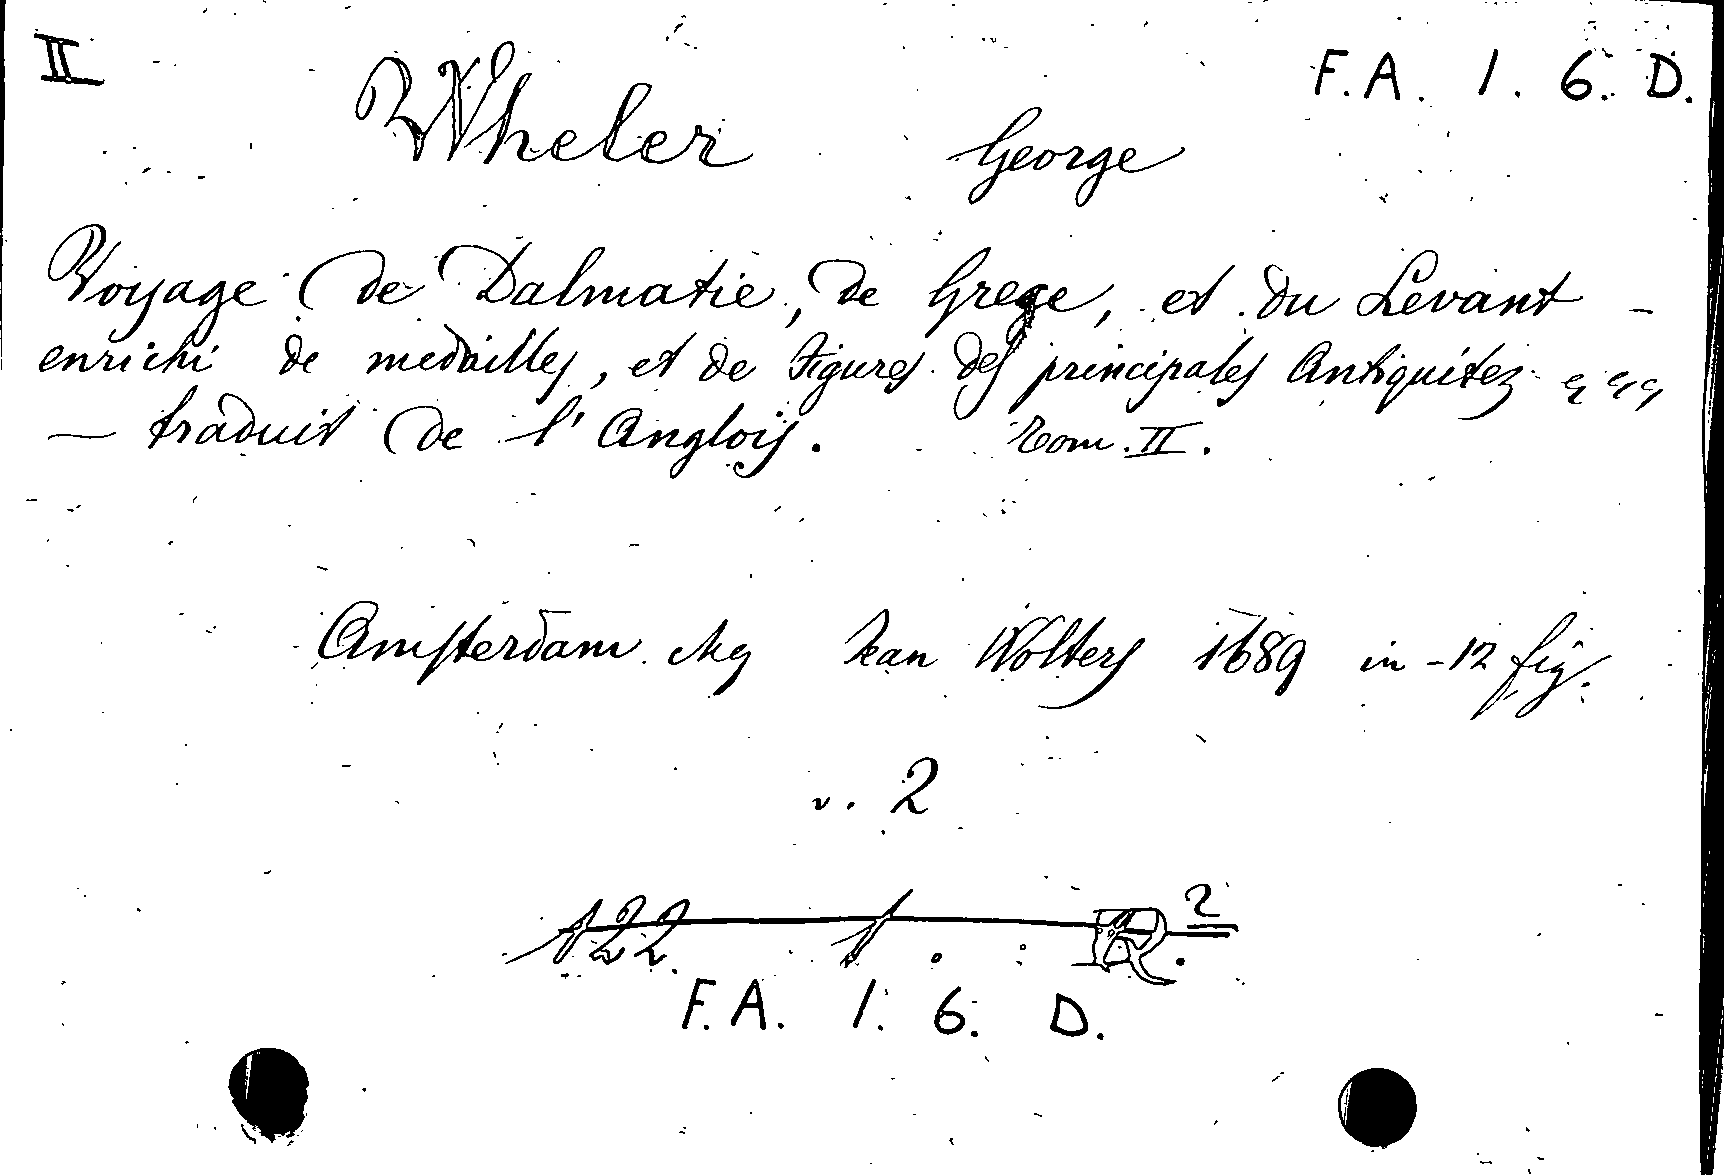 II F.A. 1. 6. D.
Wheler George
Voyage de Dalmatie, de Grece, et du Levant -
enrichi de medailles, et de Figures des principales Antiquitez
— traduit de l'Anglois. Tom. II.
Amsterdam Jean Wolters 1689 in-12 fig.
v. 2
122 1. R. 2
F.A. 1. 6. D.